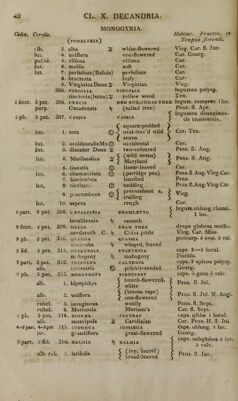 42 CL. X. DECANDRIA.
MONOGYNIA.
Calix. Corolla. Habitat. Fructus, et Tempus florendi.
(PODALYRIA)
alb. 3. alba white-flowered Virg. Car. fl. Jun.
lut. 4. uniflora one-flowered Car. Georg.
pallid. 5. villosa villous Car.
lut. 6. mollis soft Car.
lut. 7. perfoliata (Rafnia) perfoliate Car.
8. bracteata leafy Car.
9. Virginiana Donn Virginian Virg.
505. VIRGILIA VIRGILIA legumen polysp.
tinctoria (lutea) yellow wood Ten.
5 dent. 5 pet. 506. CERCIS RED BUD (JUDAS TREE legum. compres. 1 loc.
purp. Canadensis (salad tree) Pens. fl. Apr.
5 ph. 5 pet. 507. CASSIA CASSIA legumen dissepimentis transversis.
lut. 1. tora square-podded oval-leav'd wild senna Car. Ten.
lut. 2. occidentalis Mx occidental Car.
lut. 3. discolor Donn two-coloured Pens. fl. Aug.
lut. 4. Marilandica (wild senna) Maryland Pens. fl. Aug.
lut. 5. linearis linear-leaved Car.
lut. 6. chamæcrista (partridge pea) Pens. fl. Aug. Virg. Car.
lut. 7. fasciculata bundled Pens.
lut. 8. nictitans nodding Pens. fl. Aug. Virg. Car.
9. procumbens procumbent s. trailing Virg.
lut. 10. aspera rough Car.
5 part. 5 pet. 508. CÆSALPINIA BRASILETTO legum. oblong. rhomb. 1 loc.
brasiliensis smooth
5 dent. 5 pet. 509. MELIA BEAD TREE drupa globosa mollis.
azedarach C. China pride Virg. Car. Miss.
5 ph. 5 pet. 510. QUASSIA QUASSIA pericarp. 5 sexv. 2 val.
simaruba winged, leaved
5 fid. 5 pet. 511. SWIETENIA SWIETENIA caps. 5—1 locul.
mahogony mahogany Florida.
5 part. 5 pet. 512. TRIBULUS CALTROPS caps. 5 spinos polysp.
alb. terrestris prickly-seeded Georg.
5 ph. 5 pet. 513. MONOTROPA BIRDSNEST caps. 5 gona 5 valv.
alb. 1. hypopithys bunch-flowered, white Pens. fl. Jul.
alb. 2. uniflora (broom caps) one-flowered Pens. fl. Jul. N. Angl.
rubel. 3. lanuginosa woolly Pens. fl. Sept.
rubel. 4. Morisonia Morison's Car. fl. Sept.
5 ph. 5 pet. 514. DIONÆA FLYTRAP caps. gibba 1 locul.
alb. muscipula Carolinian Car. Pens. H. fl. Jul.
4-5part. 4-5pet 515. JUSSIEUA JUSSIEUA caps. oblong. 5 loc.
lut. grandiflora great-flowered Georg.
5 part. 5 fid. 516. KALMIA KALMIA caps. subglobosa 5 loc. 5 valv.
alb. rub. 1. latifolia (ivy, laurel) broad-leaved Pens. fl. Jun.